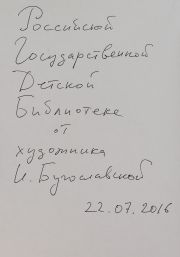 Российской
Государственной
Детской
Библиотеке
от
художника
И. Бугославской
22.07.2016